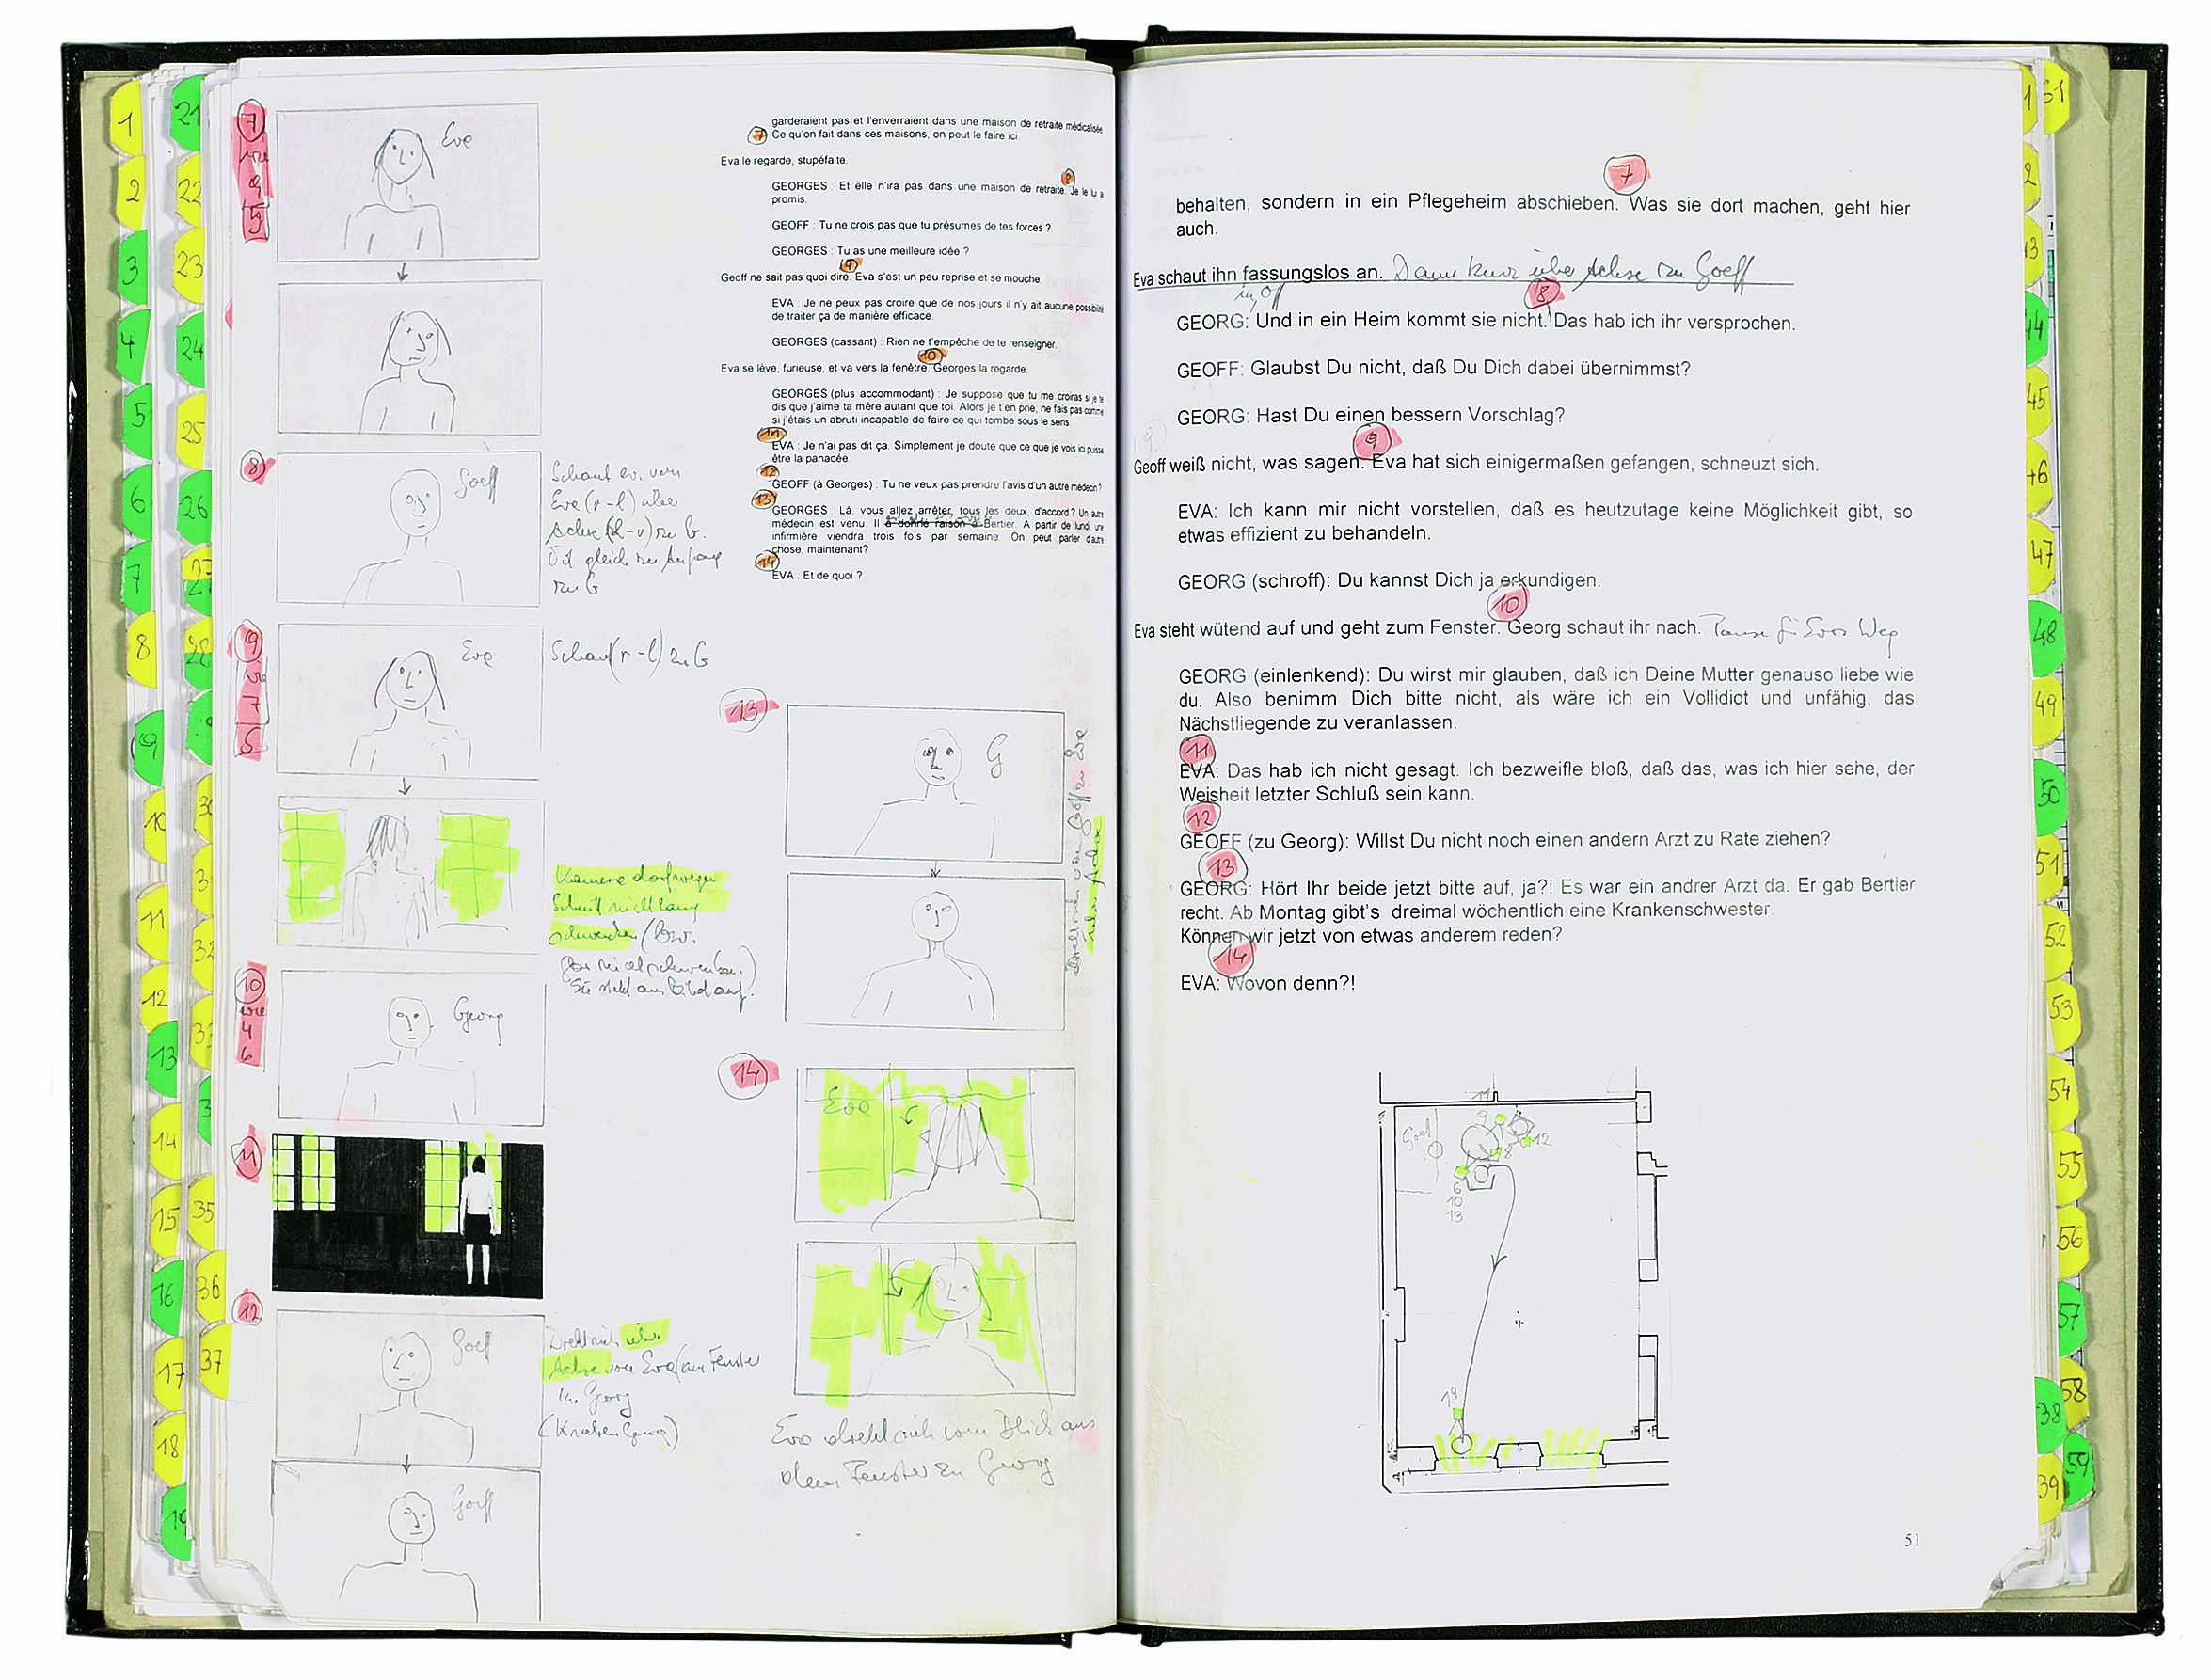 7
wie
9
5
Eve
8
Goeff
Schaut ev. von
Eve (r-l) über
Achse (l-r) zu G.
gleich zu Anfang
zu G
9
wie
7
5
Eve
Schaut (r-l) zu G
Kamera darf wegen
Schnitt nicht lang
schwenken (bzw.
gar nicht schwenken.)
Sie steht aus Bild auf.
10
wie
4
6
Georg
11
12
Goeff
Dreht sich über
Achse von Eva (am Fenster
zu Georg
Goeff
garderaient pas et l'enverraient dans une maison de retraite médicalisée
7 Ce qu'on fait dans ces maisons, on peut le faire ici.
Eva le regarde, stupéfaite.
8
GEORGES : Et elle n'ira pas dans une maison de retraite. Je le lui a
promis.
GEOFF : Tu ne crois pas que tu présumes de tes forces ?
GEORGES : Tu as une meilleure idée ?
9
Geoff ne sait pas quoi dire. Eva s'est un peu reprise et se mouche.
EVA : Je ne peux pas croire que de nos jours il n'y ait aucune possibilité
de traiter ça de manière efficace.
GEORGES (cassant) : Rien ne t'empêche de te renseigner.
10
Eva se lève, furieuse, et va vers la fenêtre. Georges la regarde.
GEORGES (plus accommodant) : Je suppose que tu me croiras si je te
dis que j'aime ta mère autant que toi. Alors je t'en prie, ne fais pas comme
si j'étais un abruti incapable de faire ce qui tombe sous le sens.
11
EVA : Je n'ai pas dit ça. Simplement je doute que ce que je vois ici puisse
être la panacée.
12
GEOFF (à Georges) : Tu ne veux pas prendre l'avis d'un autre médecin ?
13
GEORGES : Là, vous allez arrêter, tous les deux, d'accord ? Un autre
médecin est venu. Il a donné raison à Bertier. A partir de lundi, une
infirmière viendra trois fois par semaine. On peut parler d'autre
chose, maintenant?
14
EVA : Et de quoi ?
13
G
Dreht sich von Goeff zu Eve
über Achse
14
Eve
Eva dreht sich vom Blick aus
dem Fenster zu Georg
7
behalten, sondern in ein Pflegeheim abschieben. Was sie dort machen, geht hier
auch.
Eva schaut ihn fassungslos an. Dann kurz über Achse zu Goeff
im Off
8
GEORG: Und in ein Heim kommt sie nicht. Das hab ich ihr versprochen.
GEOFF: Glaubst Du nicht, daß Du Dich dabei übernimmst?
GEORG: Hast Du einen bessern Vorschlag?
9
Geoff weiß nicht, was sagen. Eva hat sich einigermaßen gefangen, schneuzt sich.
EVA: Ich kann mir nicht vorstellen, daß es heutzutage keine Möglichkeit gibt, so
etwas effizient zu behandeln.
GEORG (schroff): Du kannst Dich ja erkundigen.
10
Eva steht wütend auf und geht zum Fenster. Georg schaut ihr nach. Pause für Evas Weg
GEORG (einlenkend): Du wirst mir glauben, daß ich Deine Mutter genauso liebe wie
du. Also benimm Dich bitte nicht, als wäre ich ein Vollidiot und unfähig, das
Nächstliegende zu veranlassen.
11
EVA: Das hab ich nicht gesagt. Ich bezweifle bloß, daß das, was ich hier sehe, der
Weisheit letzter Schluß sein kann.
12
GEOFF (zu Georg): Willst Du nicht noch einen andern Arzt zu Rate ziehen?
13
GEORG: Hört Ihr beide jetzt bitte auf, ja?! Es war ein andrer Arzt da. Er gab Bertier
recht. Ab Montag gibt's dreimal wöchentlich eine Krankenschwester.
Können wir jetzt von etwas anderem reden?
14
EVA: Wovon denn?!
11
Goeff
9
12
8
6
10
13
14
51
1
2
3
4
5
6
7
8
9
10
11
12
13
14
15
16
17
18
19
21
22
23
24
25
26
27
32
35
36
37
45
47
48
49
50
51
52
53
54
55
56
57
58
38
59
39